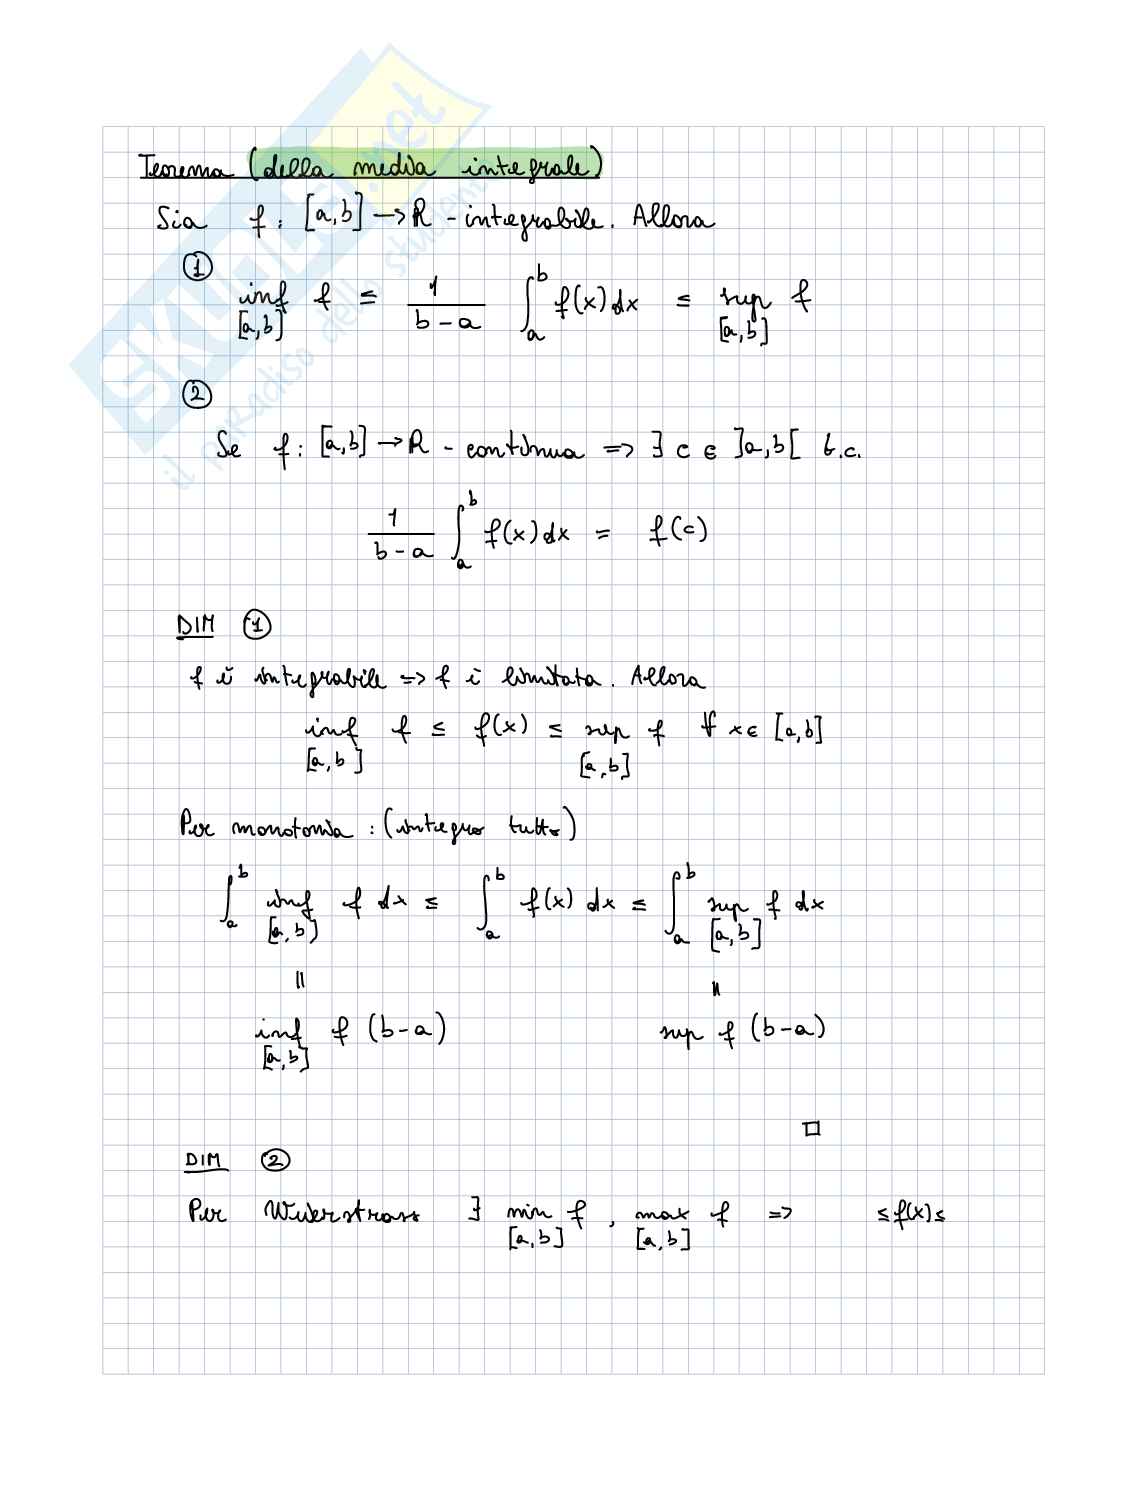 Teorema (della media integrale)
Sia f: [a,b] → R - integrabile. Allora
①
inf f ≤ 1/(b-a) ∫_a^b f(x)dx ≤ sup f
[a,b] [a,b]
②
Se f: [a,b] → R - continua => ∃ c ∈ ]a,b[ t.c.
1/(b-a) ∫_a^b f(x)dx = f(c)
DIM ①
f è integrabile => f è limitata. Allora
inf f ≤ f(x) ≤ sup f ∀ x ∈ [a,b]
[a,b] [a,b]
Per monotonia: (integro tutto)
∫_a^b inf f dx ≤ ∫_a^b f(x) dx ≤ ∫_a^b sup f dx
[a,b] [a,b]
= =
inf f (b-a) sup f (b-a)
[a,b]
□
DIM ②
Per Weierstrass ∃ min f, max f => ≤ f(x) ≤
[a,b] [a,b]
SKUOLA.net
il paradiso dello studente